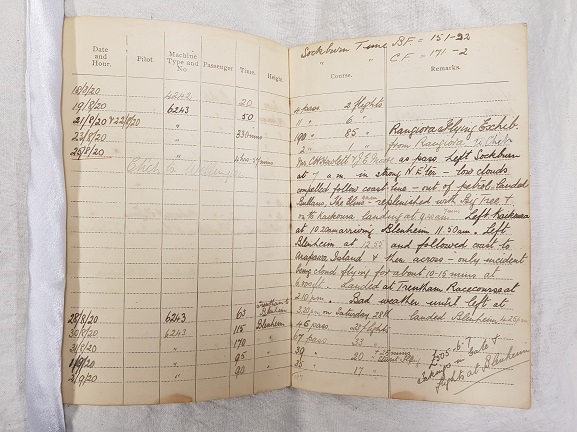 Sockburn Time B.F. = 151-32
" " C.F. = 171-2
Date and Hour.
Pilot
Machine Type and No.
Passenger
Time.
Height.
Course.
Remarks.
18/8/20 4242 20 4 pass. 2 flights
19/8/20 6243 50 11 " 6 "
21/8/20 & 22/8/20 " 330 mins 190 " 85 " Rangiora & Flying Exchib.
23/8/20 " 2 " 1 " from Rangiora to Chch
25/8/20 " 4 hrs Mr. C.H. Hewlett & J.E. Moore as pass. left Sockburn
Chch to Wellington
at 7 a.m. in strong N.E'ter - low clouds
compelled follow coast line - out of petrol & landed
The Elms - replenished with &
on to Kaikoura landing at 9 am. Left Kaikoura
at 10.20am arriving Blenheim 11.50am. Left
Blenheim at 12.55 and followed coast to
Arapawa Island & then across - only incident
being cloud flying for about 10-15 mins at
6000ft. Landed at Trentham Racecourse at
2.10pm. Bad weather until left at
28/8/20 6243 65 Trentham to Blenheim 3.20pm on Saturday 28th landed Blenheim 4.25pm
30/8/20 6243 115 Blenheim 46 pass. 20 flights
31/8/20 " 170 67 pass 33 "
1/9/20 " 95 39 " 20 "
2/9/20 " 90 35 " 17 "
£305-6-7
Takings in Gate &
flights at Blenheim